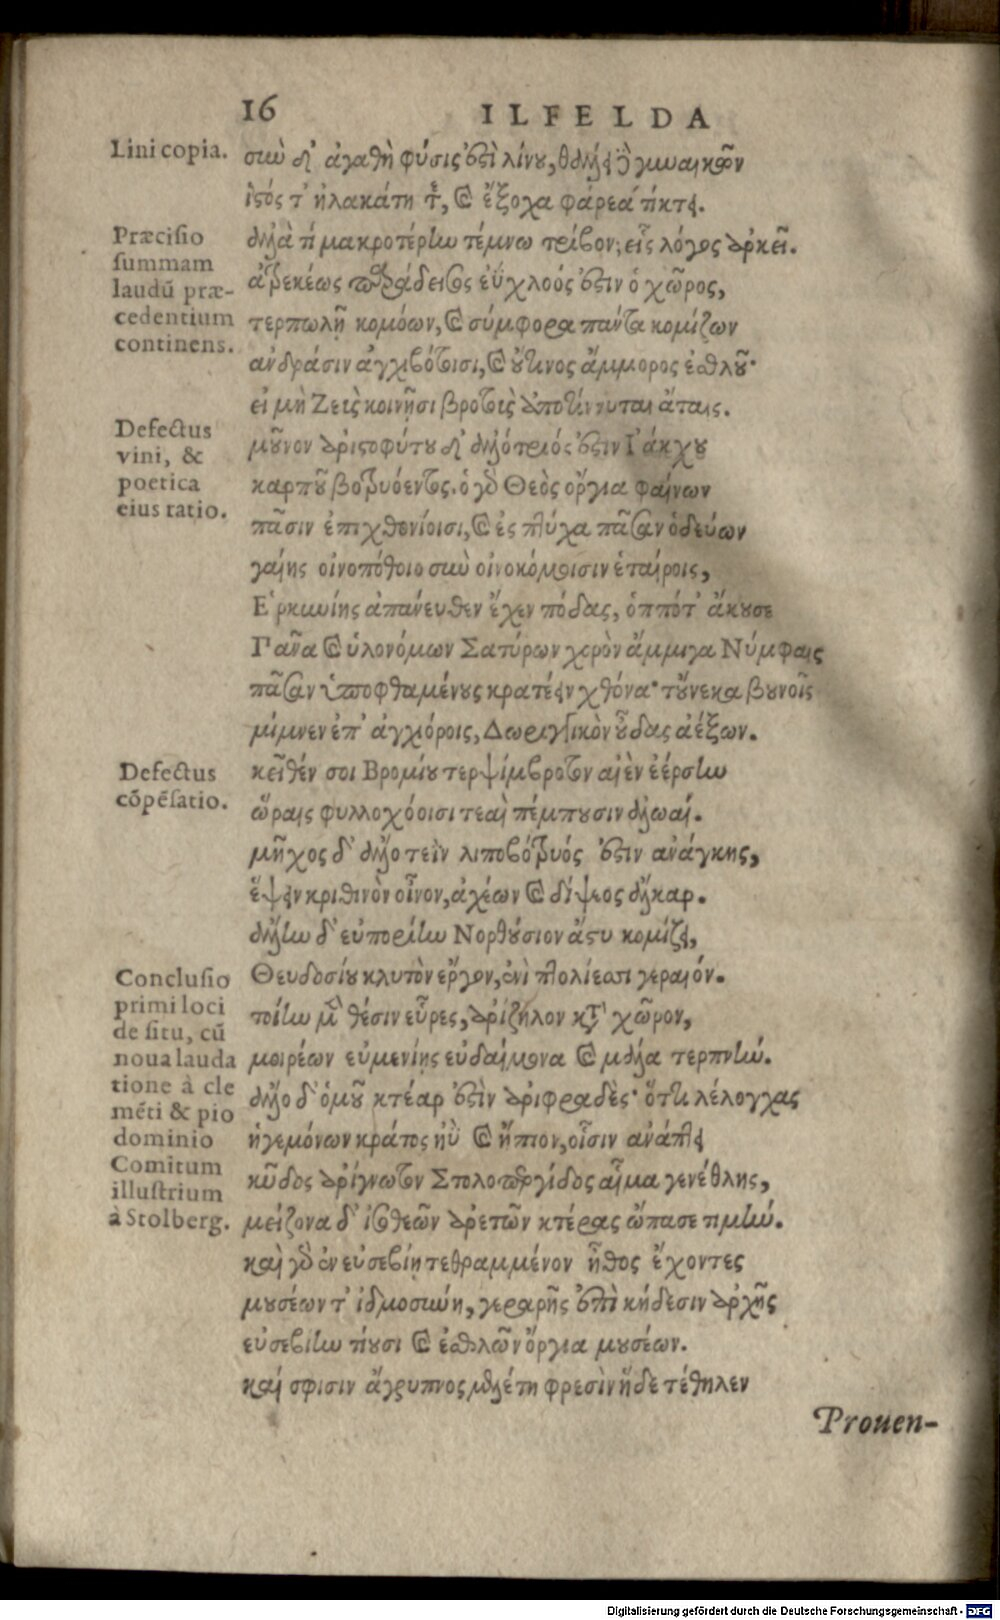 16 ILFELDA
Lini copia.
σὺν δ' ἀγαθὴ φύσις ἐστὶ λίνου, θάλλει δὲ γυναικῶν
ἱστός τ' ἠλακάτη τε, καὶ ἔξοχα φάρεα τίκτει.
Præcisio
summam
laudũ præ-
cedentium
continens.
ἀλλὰ τί μακροτέρην τέμνω τρίβον; εἷς λόγος ἀρκεῖ.
ἀτρεκέως παράδεισος ἐΰχλοός ἐστιν ὁ χῶρος,
τερπωλῇ κομόων, καὶ σύμφορα πάντα κομίζων
ἀνδράσιν ἀγχιβότοισι, καὶ οὔτινος ἄμμορος ἐσθλοῦ·
εἰ μὴ Ζεὺς κοινῇσι βροτοὺς ἀποτίννυται ἄταις.
Defectus
vini, &
poetica
eius ratio.
μοῦνον ἀριστοφύτου δ' ἀλλότριός ἐστιν Ἰάκχου
καρποῦ βοτρυόεντος. ὁ γὰρ Θεὸς ὄργια φαίνων
πᾶσιν ἐπιχθονίοισι, καὶ ἐς πτύχα πᾶσαν ὁδεύων
γαίης οἰνοπότοιο σὺν οἰνοκόμοισιν ἑταίροις,
Ἑρκυνίης ἀπάνευθεν ἔχεν πόδας, ὁππότ' ἄκουσε
Πᾶνα καὶ ὑλονόμων Σατύρων χορὸν ἄμμιγα Νύμφαις
πᾶσαν ὑποφθαμένους κρατέειν χθόνα· τοὔνεκα βουνοῖς
μίμνεν ἐπ' ἀγχιόροις, Δωριγγικὸν οὖδας ἀέξων.
Defectus
cõpẽsatio.
κεῖθέν σοι Βρομίου τερψίμβροτον αἰὲν ἐέρσην
ὥραις φυλλοχόοισι τεαὶ πέμπουσιν ἀλωαί.
μῆχος δ' ἄλλο τεῒν λιποβότρυός ἐστιν ἀνάγκης,
ἕψειν κριθινὸν οἶνον, ἀχέων καὶ δίψεος ἄλκαρ.
ἄλλην δ' εὐπορίην Νορθούσιον ἄστυ κομίζει,
Conclusio
primi loci
de situ, cũ
noua lauda
tione à cle
mẽti & pio
dominio
Comitum
illustrium
à Stolberg.
Θευδοσίου κλυτὸν ἔργον, ἐνὶ πτολίεσσι γεραιόν.
τοίην μὲν θέσιν εὗρες, ἀρίζηλον κατὰ χῶρον,
μοιρέων εὐμενίης εὐδαίμονα καὶ μάλα τερπνήν.
ἄλλο δ' ὁμοῦ κτέαρ ἐστὶν ἀριφραδὲς· ὅττι λέλογχας
ἡγεμόνων κράτος ἠῢ καὶ ἤπιον, οἷσιν ἀνάπτει
κῦδος ἀρίγνωτον Στολοπυργίδος αἷμα γενέθλης,
μείζονα δ' ἰσοθεῶν ἀρετῶν κτέρας ὤπασε τιμήν.
καὶ γὰρ ἐν εὐσεβίῃ τεθραμμένον ἦθος ἔχοντες
μουσέων τ' ἰδμοσύνῃ, γεραρῆς ἐπὶ κήδεσιν ἀρχῆς
εὐσεβίην τίουσι καὶ ἐσθλῶν ὄργια μουσέων.
καί σφισιν ἄγρυπνος μελέτη φρεσὶν ἥδε τέθηλεν
Prouen-
Digitalisierung gefördert durch die Deutsche Forschungsgemeinschaft - DFG